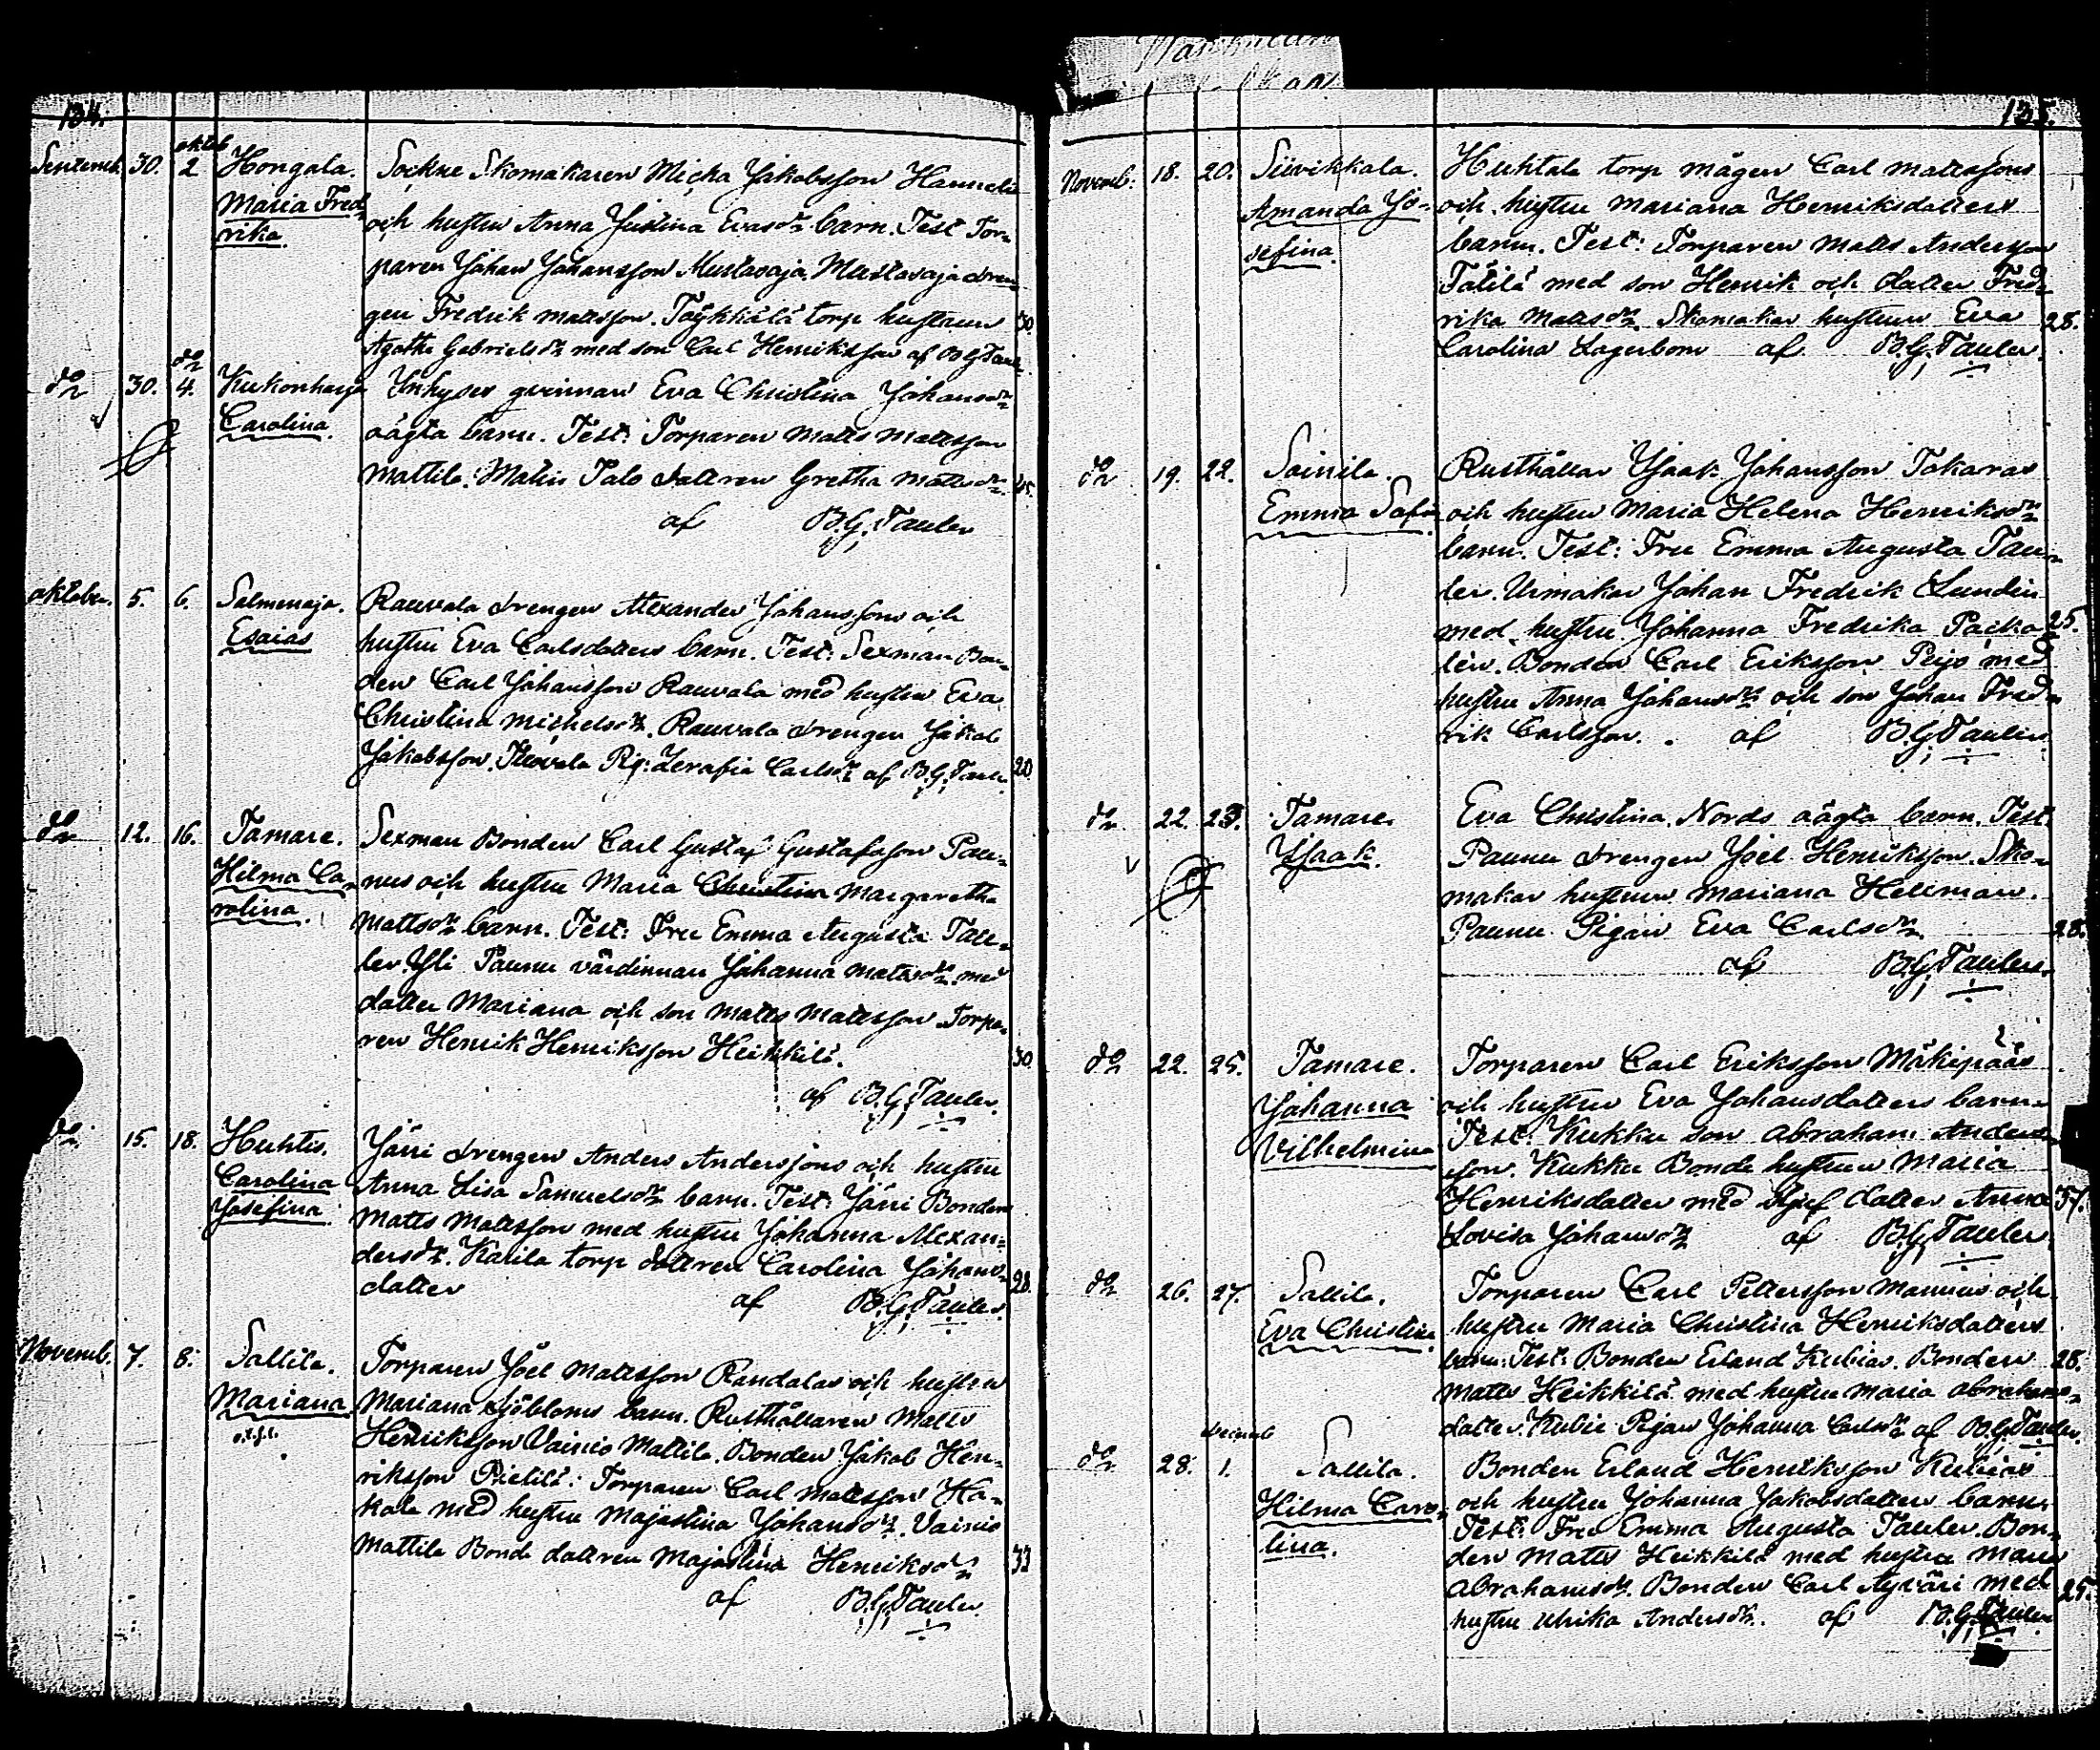 134.
Septemb. 30. oktob 2 Hongala. Sockne Skomakaren Micha Jakobsson Hannelin
Maria Fred- och hustru Anna Justina Evasdr barn. Test Tor-
rika paren Johan Johansson Mustaoja. Mustaoja dren-
gen Fredrik Mattsson. Töykkälä torp hustrun 30
Agatha Gabrielsdr med son Carl Henriksson af B.G. Tauler
do 30. do 4. Kukonharja Inhyses qvinnan Eva Christina Johansdr
Carolina. oägta barn. Test: Torparen Matts Mattsson
Mattila. Talo dattren Gretha Mattsdr. 45.
af B.G. Tauler
oktober. 5. 6. Salmenoja. Rauvola drengen Alexander Johanssons och
Esaias hustru Eva Carlsdatters barn. Test: Sexman Bon-
den Carl Johansson Rauvola med hustru Eva
Christina Michelsdr. Rauvola drengen Jakob
Jakobsson. Pig: Serafia Carlsdr af B.G. Tauler 20
do 12. 16. Tamare. Sexman Bonden Carl Gustaf Gustafsson Pau-
Hilma Ca- nus och hustru Maria Christina Margaretha
rolina. Mattsdr barn. Test: Fru Emma Augusta Tau-
ler. Yli Paunu värdinnan Johanna Mattsdr. med
datter Mariana och son Matts Mattsson. Torpa-
ren Henrik Henriksson Heikkilä. 30
af B.G. Tauler.
do 15. 18. Huhtis. Jäni drengen Anders Anderssons och hustru
Carolina Anna Lisa Samuelsdr barn. Test: Jäni Bonden
Josefina Matts Mattsson med hustru Johanna Alexan-
dersdr. Katila torp dattren Carolina Johans-
datter af B.G. Tauler 28.
Novemb. 7. 8. Sallila. Torparen Joel Mattsson Randalas och hustru
Mariana. Mariana Sjöbloms barn. Rusthållaren Matts
Henriksson Vainio Mattila. Bonden Jakob Hen-
riksson Pietilä. Torparen Carl Mattsson Ha-
kala med hustru Majastina Johansdr. Vainio
Mattila Bonde dattren Majastina Henriksdr 33
af B.G. Tauler.
135.
Novemb: 18. 20. Siivikkala. Huhtala torp mågen Carl Mattssons
Amanda Jo- och hustru Mariana Henriksdatters
sefina. barn. Test: Torparen Matts Andersson
Tätilä med son Henrik och datter Fred-
rika Mattsdr. Skomakar hustrun Eva 28.
Carolina Lagerbom af B.G. Tauler.
do 19. 22. Soinila. Rusthållar Isaak Johansson Takaras
Emma Sofia och hustru Maria Helena Henriksdr
barn. Test: Fru Emma Augusta Tau-
ler. Urmakar Johan Fredrik Lundin
med hustru Johanna Fredrika Packa- 25.
lén. Bonden Carl Eriksson Peijo med
hustru Anna Johansdr och son Johan Fred-
rik Carlsson. af B.G. Tauler
do 22. 23. Tamare. Eva Christina Nords oägta barn. Test:
Isaak. Paunu drengen Joel Henriksson. Sko-
makar hustrun Mariana Hellman.
Paunu Pigan Eva Carlsdr 28.
af B.G. Tauler.
do 22. 25. Tamare. Torparen Carl Eriksson Mäkipääs
Johanna och hustru Eva Johansdatters barn.
Vilhelmina Test: Kukku son Abraham Anders-
son. Kukku Bonde hustrun Maria
Henriksdatter med styf datter Anna 37.
Lovisa Johansdr af B.G. Tauler.
do 26. 27. Sallila. Torparen Carl Pettersson Mannius och
Eva Christina hustru Maria Christina Henriksdatters
barn. Test: Bonden Erland Kubias. Bonden 28.
Matts Heikkilä med hustru Maria Abrahams-
datter. Kubie Pigan Johanna Carlsdr af B.G. Tauler.
do 28. decemb 1. Sallila. Bonden Erland Henriksson Kubias
Hilma Caro- och hustru Johanna Jakobsdatters barn.
lina. Test: Fru Emma Augusta Tauler. Bon-
den Matts Heikkilä med hustru Maria
Abrahamsdr. Bonden Carl Äyräri med 25.
hustru Ulrika Andersdr. af B.G. Tauler